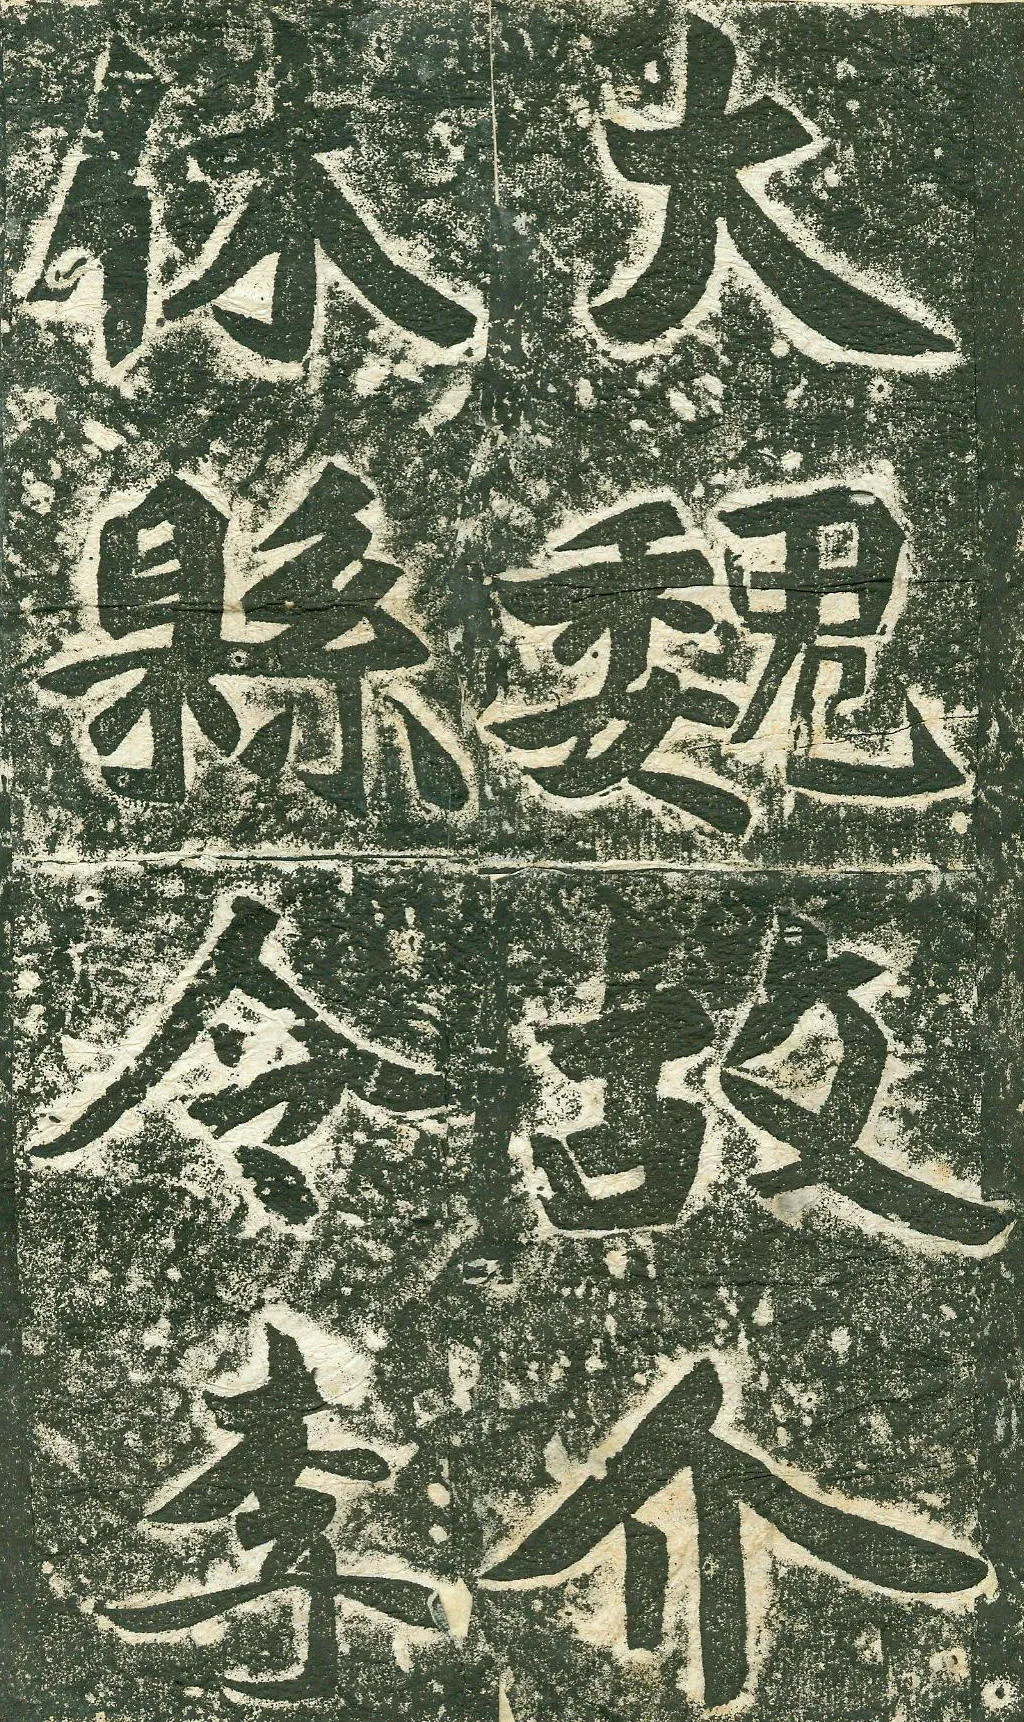 大魏故介
休縣令李